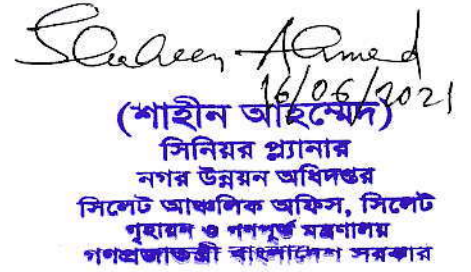 Shaheen Ahmed
16/06/2021
(শাহীন আহম্মেদ)
সিনিয়র প্ল্যানার
নগর উন্নয়ন অধিদপ্তর
সিলেট আঞ্চলিক অফিস, সিলেট
গৃহায়ন ও গণপূর্ত মন্ত্রণালয়
গণপ্রজাতন্ত্রী বাংলাদেশ সরকার